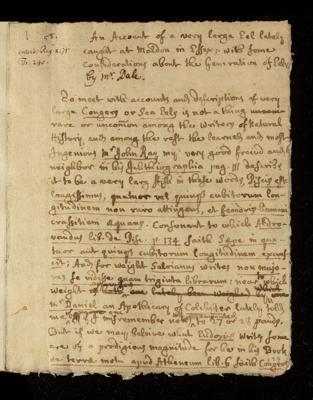 58.
An Account of a very large Eel lately
caught at Maldon in Essex; with some
considerations about the Generation of Eels,
by Mr. Dale.
To meet with accounts and descriptions of very
large Congers or Sea Eels is not a thing
rare or uncommon among the Writers of Natural
History, and among the rest the learned and most
Ingenious Mr. John Ray my very good friend and
neighbor in his Ichthiographia pag. 111 describes
it to be a very large fish in these words Piscis est
longissimus, quatuor vel quinque cubitorum lon-
gitudinem non raro attingens, et femoris humani
crassitiem æquans. Consonant to which Aldro-
vandus lib. de Pisc. p. 134 saith Sæpe in qua-
tuor aut quinque cubitorum longitudinem excres-
cit; And for weight Salvianus writes non majo-
res se vidisse quam triginta librarum; near which
weight
Mr. Daniel an Apothecary of Colchester lately told
me
But if we may believe what Eudoxus writes some
are of a prodigious magnitude for he in his Book
de terræ motu apud Athenæum lib. 6 saith Congros